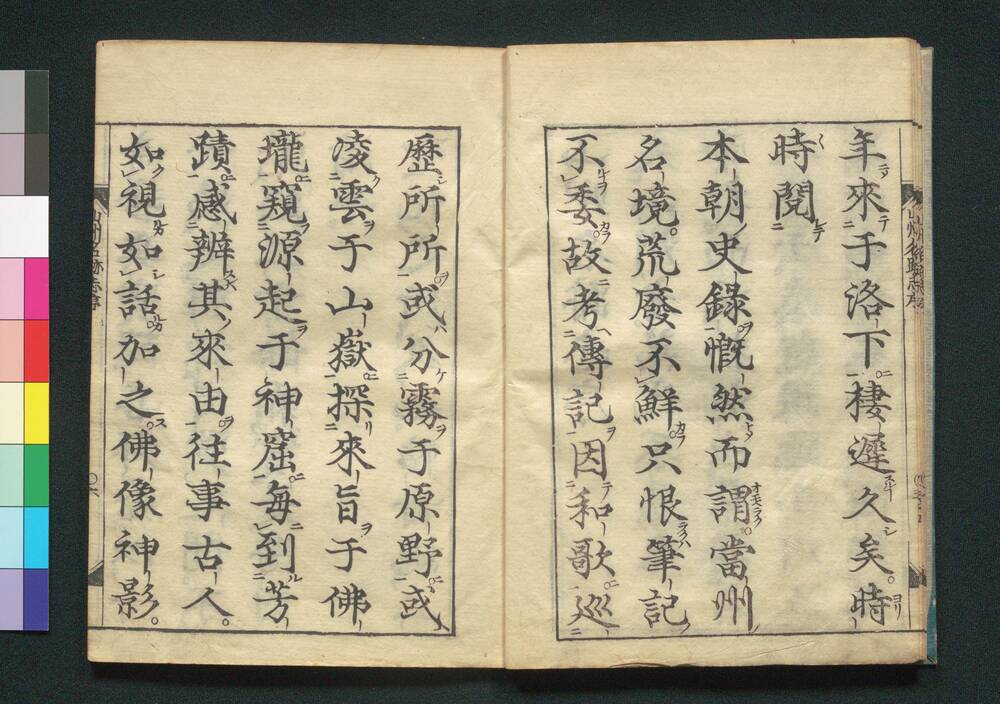 年來于洛下棲遲久矣。時
時閱
本朝史錄慨然而謂。當州
名境。荒廢不鮮只恨筆記
不委。故考傳記因和歌巡
歷所所或分霧于原野或
凌雲于山嶽探來旨于佛
壠窺源起于神窟每到芳
蹟感辨其來由往事古人。
如視如話加之。佛像神影。